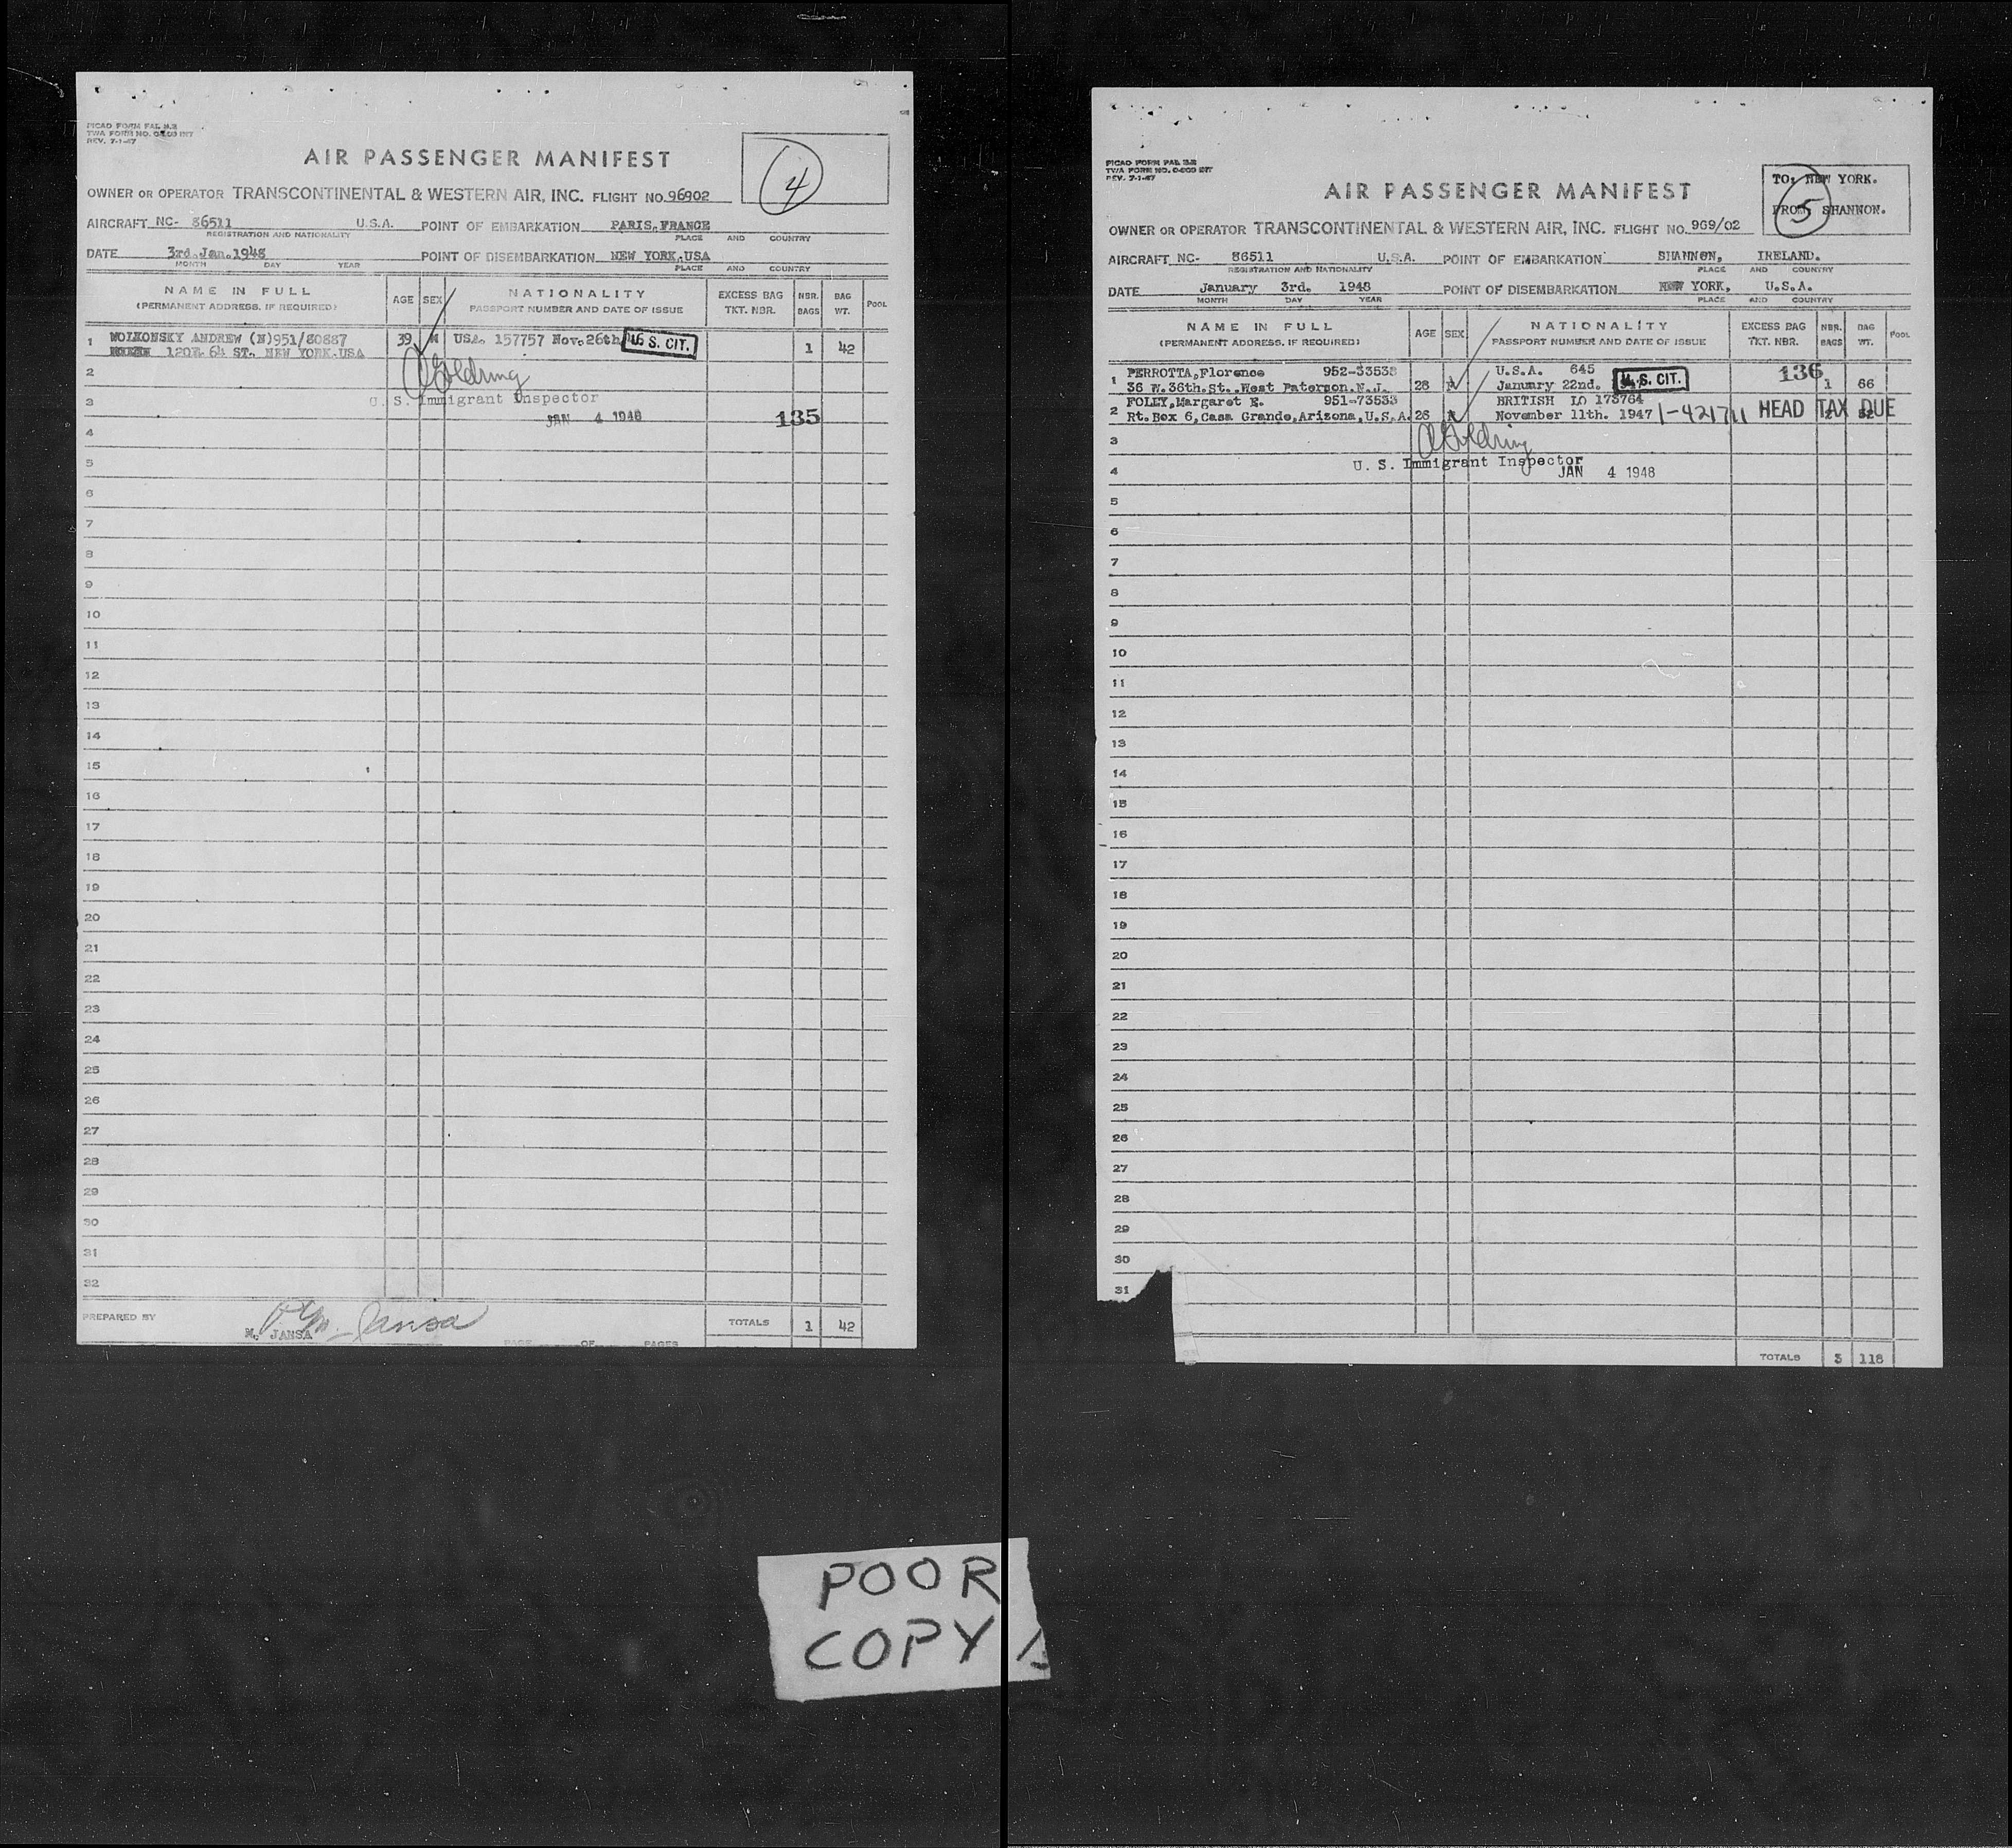 PICAO FORM PAL 2.2
REV. 7-1-47
4
AIR PASSENGER MANIFEST
OWNER OR OPERATOR TRANSCONTINENTAL & WESTERN AIR, INC. FLIGHT NO. 96902
AIRCRAFT NC- 86511 U.S.A. POINT OF EMBARKATION PARIS, FRANCE
REGISTRATION AND NATIONALITY PLACE AND COUNTRY
DATE 3rd. Jan. 1948 POINT OF DISEMBARKATION NEW YORK.USA
MONTH DAY YEAR PLACE AND COUNTRY
NAME IN FULL AGE SEX NATIONALITY EXCESS BAG NBR. BAG POOL
(PERMANENT ADDRESS. IF REQUIRED) PASSPORT NUMBER AND DATE OF ISSUE TKT. NBR. BAGS WT.
1 WOLKONSKY ANDREW (N)951/80887 39 M USA. 157757 Nov. 26th 46 U. S. CIT. 1 42
64 ST. NEW YORK.USA
2
3 U. S. Immigrant Inspector
JAN 4 1948 135
4
5
6
7
8
9
10
11
12
13
14
15
16
17
18
19
20
21
22
23
24
25
26
27
28
29
30
31
32
PREPARED BY M. Jansa TOTALS 1 42
M. JANSA
PAGE OF PAGES
PICAO FORM PAL 2.2
REV. 7-1-47
TO: NEW YORK.
FROM: SHANNON.
5
AIR PASSENGER MANIFEST
OWNER OR OPERATOR TRANSCONTINENTAL & WESTERN AIR, INC. FLIGHT NO. 969/02
AIRCRAFT NC- 86511 U.S.A. POINT OF EMBARKATION SHANNON, IRELAND.
REGISTRATION AND NATIONALITY PLACE AND COUNTRY
DATE January 3rd. 1948 POINT OF DISEMBARKATION NEW YORK, U.S.A.
MONTH DAY YEAR PLACE AND COUNTRY
NAME IN FULL AGE SEX NATIONALITY EXCESS BAG NBR. BAG POOL
(PERMANENT ADDRESS. IF REQUIRED) PASSPORT NUMBER AND DATE OF ISSUE TKT. NBR. BAGS WT.
PERROTTA,Florence 952-33538 U.S.A. 645 136
1 36 W.36th.St.,West Paterson.N.J. 28 January 22nd. U. S. CIT. 1 66
FOLEY,Margaret E. 951-73533 BRITISH LO 173764
2 Rt.Box 6,Casa Grande,Arizona,U.S.A. 26 November 11th. 1947 1-421711 HEAD TAX DUE
3
4 U. S. Immigrant Inspector
JAN 4 1948
5
6
7
8
9
10
11
12
13
14
15
16
17
18
19
20
21
22
23
24
25
26
27
28
29
30
31
TOTALS 3 118
POOR
COPY